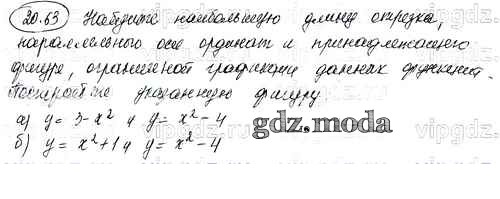 20.63 Найдите наибольшую длину отрезка,
параллельного оси ординат и принадлежащего
фигуре, ограниченной графиками данных функций.
Постройте указанную фигуру
а) y = 3-x² и y = x²-4
б) y = x²+1 и y = x²-4
gdz.moda
vipgdz.ru